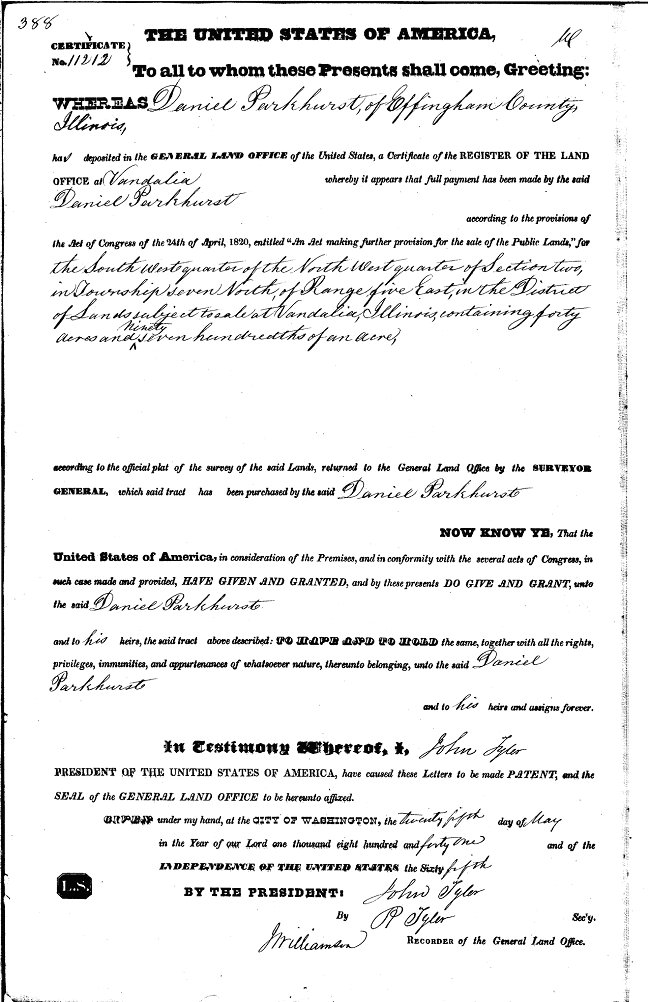 388
THE UNITED STATES OF AMERICA,
CERTIFICATE
No. 11212
To all to whom these Presents shall come, Greeting:
WHEREAS Daniel Parkhurst, of Effingham County,
Illinois,
has deposited in the GENERAL LAND OFFICE of the United States, a Certificate of the REGISTER OF THE LAND
OFFICE at Vandalia whereby it appears that full payment has been made by the said
Daniel Parkhurst
according to the provisions of
the Act of Congress of the 24th of April, 1820, entitled "An Act making further provision for the sale of the Public Lands," for
the South West quarter of the North West quarter of Section two,
in Township seven North, of Range five East, in the District
of Lands subject to sale at Vandalia, Illinois, containing forty
acres and ninety seven hundredths of an acre,
according to the official plat of the survey of the said Lands, returned to the General Land Office by the SURVEYOR
GENERAL, which said tract has been purchased by the said Daniel Parkhurst
NOW KNOW YE, That the
United States of America, in consideration of the Premises, and in conformity with the several acts of Congress, in
such case made and provided, HAVE GIVEN AND GRANTED, and by these presents DO GIVE AND GRANT, unto
the said Daniel Parkhurst
and to his heirs, the said tract above described: TO HAVE AND TO HOLD the same, together with all the rights,
privileges, immunities, and appurtenances of whatsoever nature, thereunto belonging, unto the said Daniel
Parkhurst
and to his heirs and assigns forever.
In Testimony Whereof, I, John Tyler
PRESIDENT OF THE UNITED STATES OF AMERICA, have caused these Letters to be made PATENT, and the
SEAL of the GENERAL LAND OFFICE to be hereunto affixed.
GIVEN under my hand, at the CITY OF WASHINGTON, the twenty fifth day of May
in the Year of our Lord one thousand eight hundred and forty one and of the
INDEPENDENCE OF THE UNITED STATES the Sixty fifth
L.S.
BY THE PRESIDENT: John Tyler
By R Tyler Sec'y.
J Williamson RECORDER of the General Land Office.